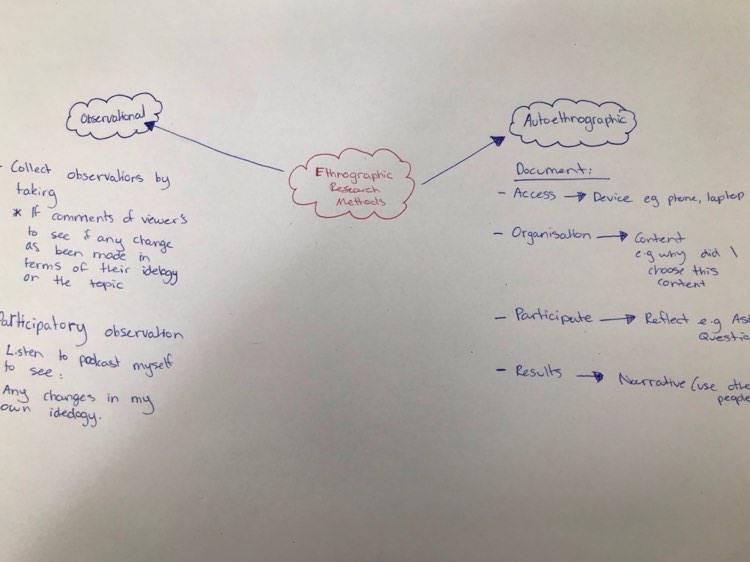 Observational
Autoethnographic
Ethnographic
Research
Methods
- Collect observations by
taking
* If comments of viewer's
to see if any change
as been made in
terms of their idelogy
or the topic
Participatory observation
Listen to podcast myself
to see:
Any changes in my
own idedogy.
Document:
- Access → Device eg phone, laptop
- Organisation → Content
e.g why did I
choose this
content
- Participate → Reflect e.g
- Results → Narrative (use